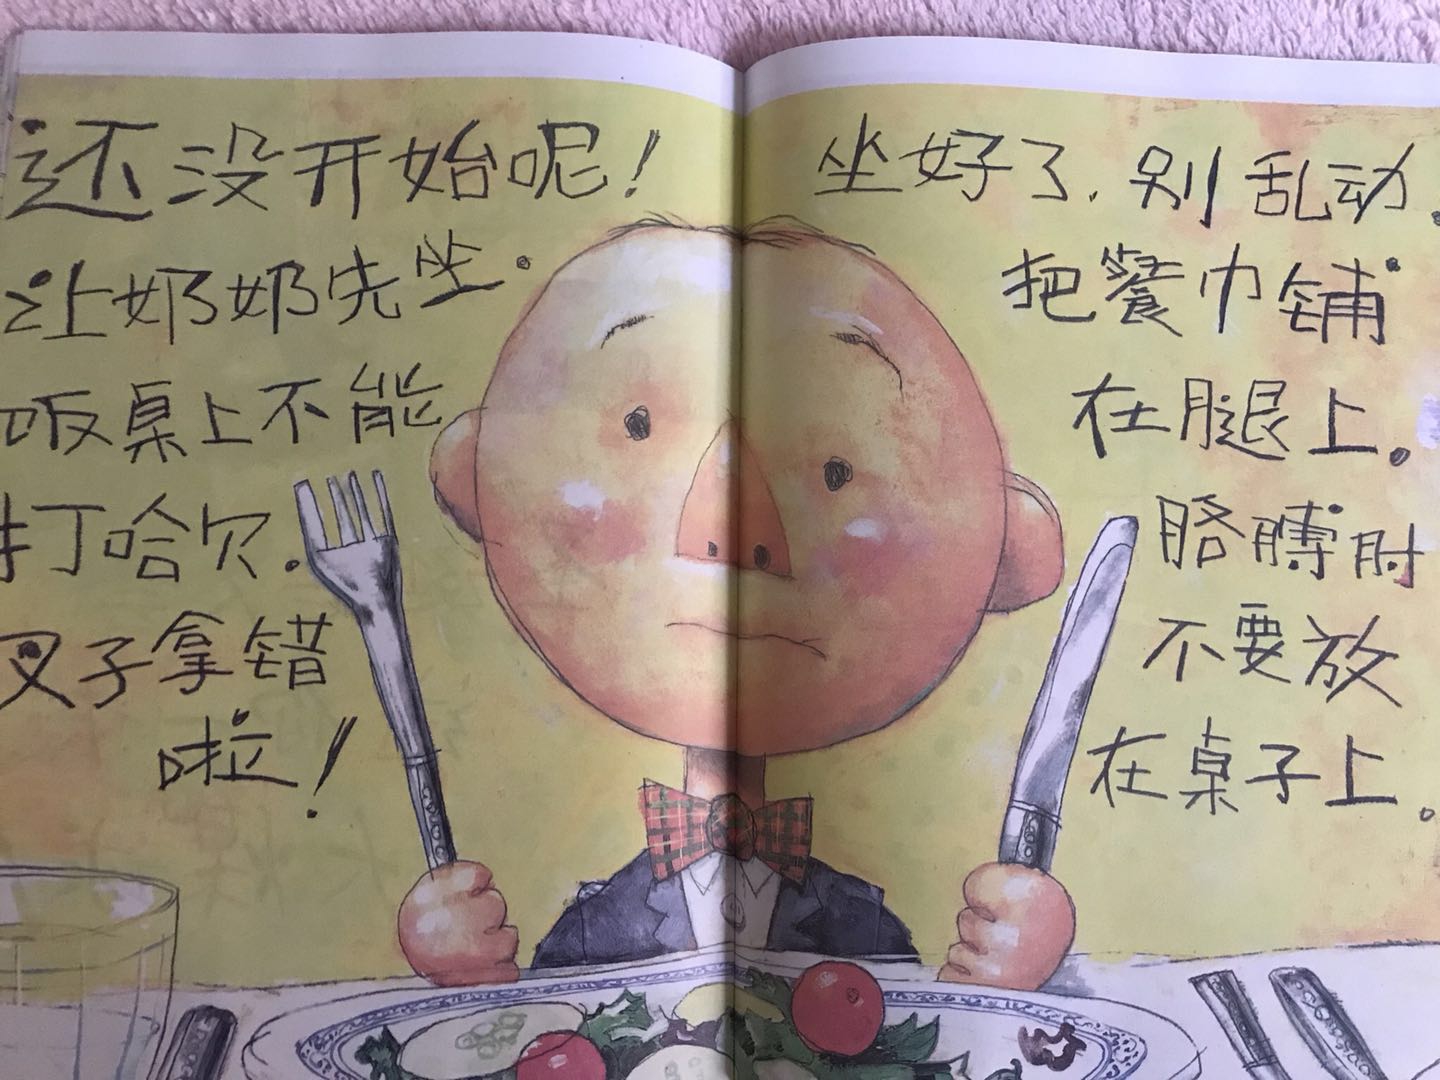 还没开始呢！
让奶奶先坐。
饭桌上不能
打哈欠。
叉子拿错
啦！
坐好了，别乱动。
把餐巾铺
在腿上。
胳膊肘
不要放
在桌子上。